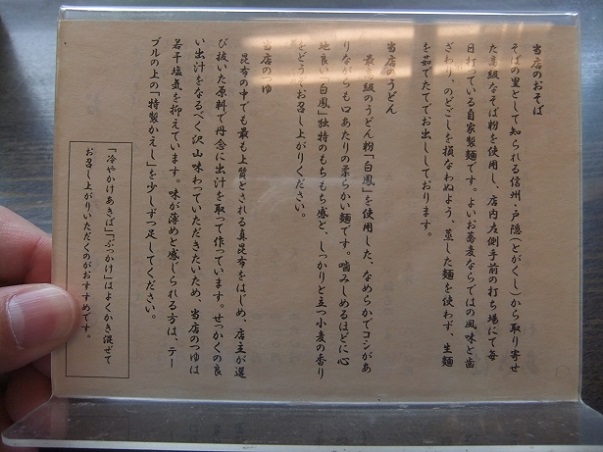 当店のおそば
そばの里として知られる信州・戸隠(とがくし)から取り寄せ
た高級なそば粉を使用し、店内左側手前の打ち場にて毎
日打っている自家製麺です。よいお蕎麦ならではの風味と歯
ざわり、のどごしを損なわぬよう、蒸した麺を使わず、生麺
を茹でたてでお出ししております。
当店のうどん
最高級のうどん粉「白鳳」を使用した、なめらかでコシがあ
りながらも口あたりの柔らかい麺です。噛みしめるほどに心
地良い「白鳳」独特のもちもち感と、しっかりと立つ小麦の香り
をどうぞお召し上がりください。
当店のつゆ
昆布の中でも最も上質とされる真昆布をはじめ、店主が選
び抜いた原料で丹念に出汁を取って作っています。せっかくの良
い出汁をなるべく沢山味わっていただきたいため、当店のつゆは
若干塩気を抑えています。味が薄めと感じられる方は、テー
ブルの上の「特製かえし」を少しずつ足してください。
「冷やかけあきば」「ぶっかけ」はよくかき混ぜて
お召し上がりいただくのがおすすめです。